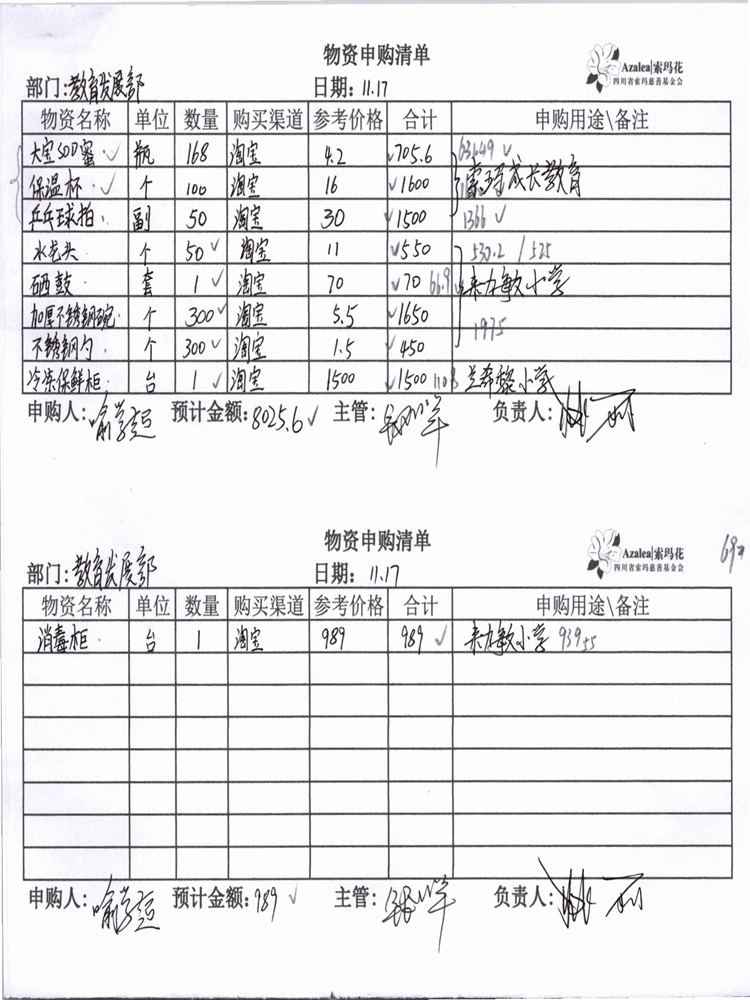 物资申购清单
Azalea|索玛花
四川省索玛慈善基金会
部门:教育发展部 日期: 11.17
物资名称 单位 数量 购买渠道 参考价格 合计 申购用途\备注
大宝SOD蜜 瓶 168 淘宝 4.2 705.6
保温杯 个 100 淘宝 16 1600 索玛花成长教育
乒乓球拍 副 50 淘宝 30 1500 1366
水龙头 个 50 淘宝 11 550 530.2 / 525
硒鼓 套 1 淘宝 70 70 66.9 来力敏小学
加厚不锈钢碗 个 300 淘宝 5.5 1650
不锈钢勺 个 300 淘宝 1.5 450 1975
冷冻保鲜柜 台 1 淘宝 1500 1500 兰希黎小学
申购人: 预计金额: 8025.6 主管: 负责人:
物资申购清单
Azalea|索玛花
四川省索玛慈善基金会
部门:教育发展部 日期: 11.17
物资名称 单位 数量 购买渠道 参考价格 合计 申购用途\备注
消毒柜 台 1 淘宝 989 989 来力敏小学 939.55
申购人: 预计金额: 989 主管: 负责人: